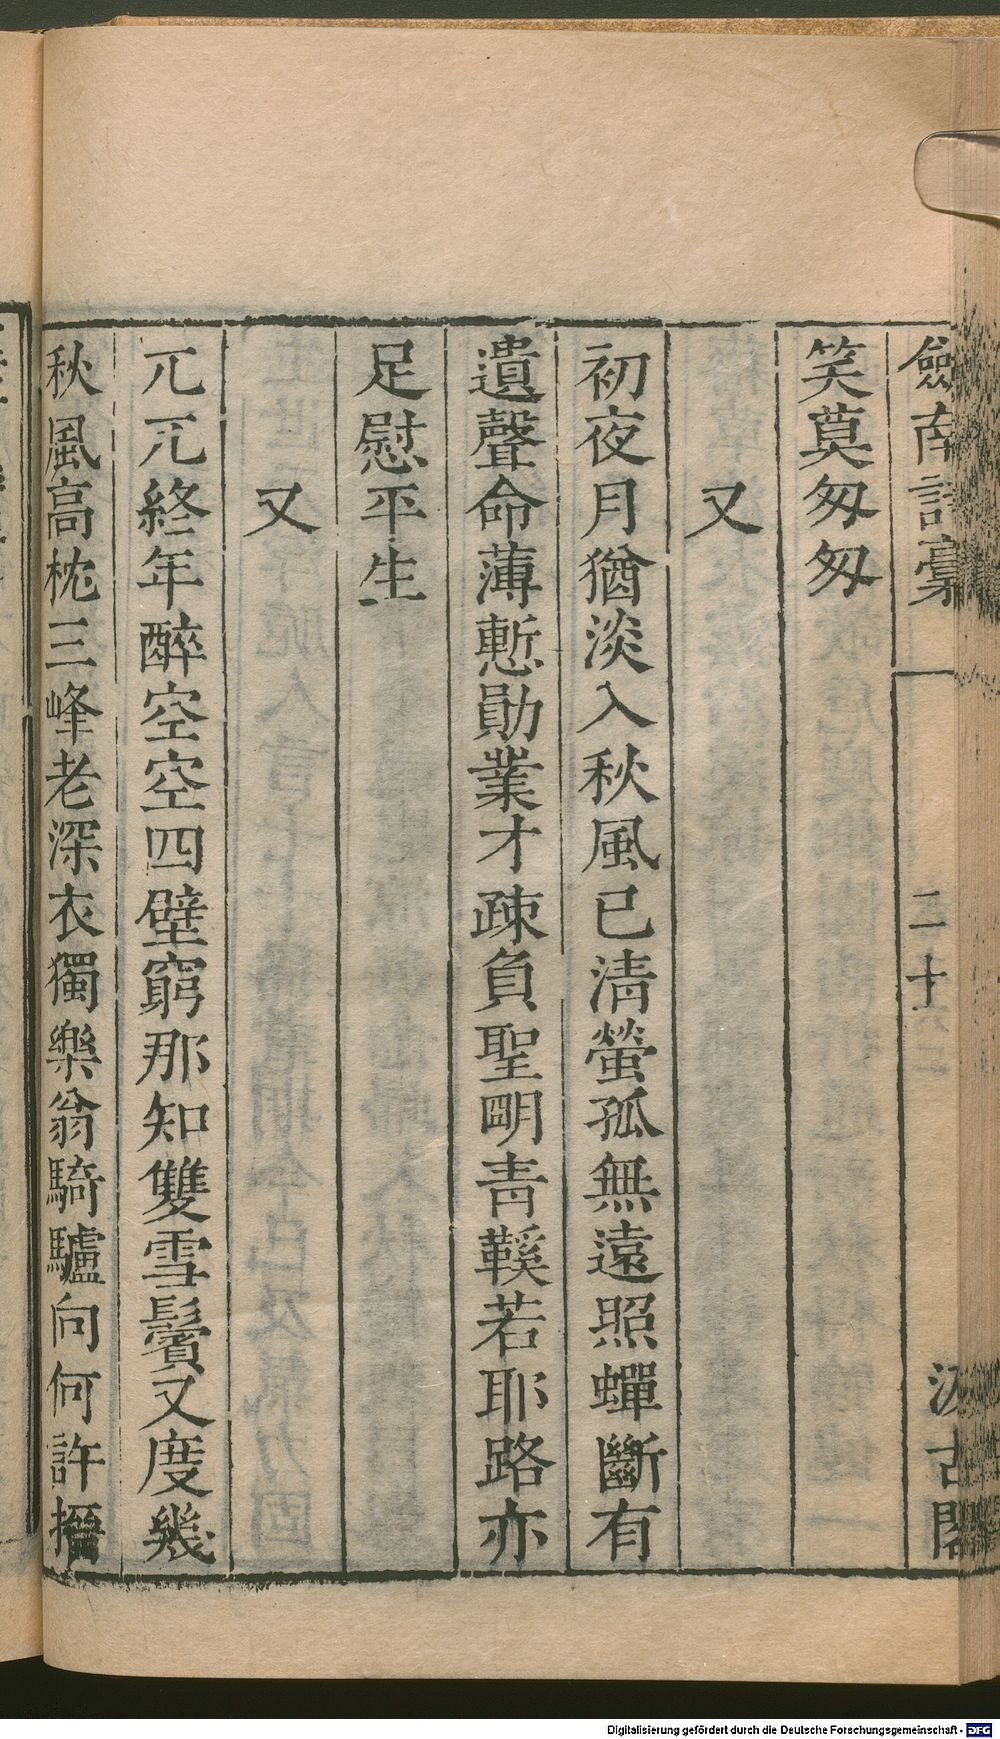 劍南詩稾
二十
汲古閣
笑莫匆匆
又
初夜月猶淡入秋風已清螢孤無遠照蟬斷有
遺聲命薄慙勛業才疎負聖明青鞵若耶路亦
足慰平生
又
兀兀終年醉空空四壁窮那知雙雪鬢又度幾
秋風高枕三峰老深衣獨樂翁騎驢向何許搢
Digitalisierung gefördert durch die Deutsche Forschungsgemeinschaft - DFG